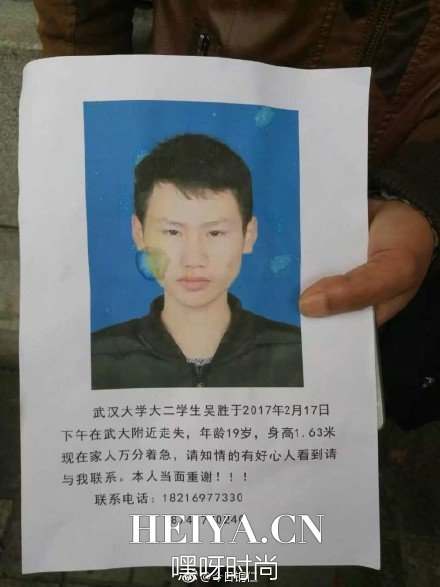 武汉大学大二学生吴胜于2017年2月17日
下午在武大附近走失，年龄19岁，身高1.63米
现在家人万分着急，请知情的有好心人看到请
与我联系。本人当面重谢！！！
联系电话：18216977330
HEIYA.CN
嘿呀时尚